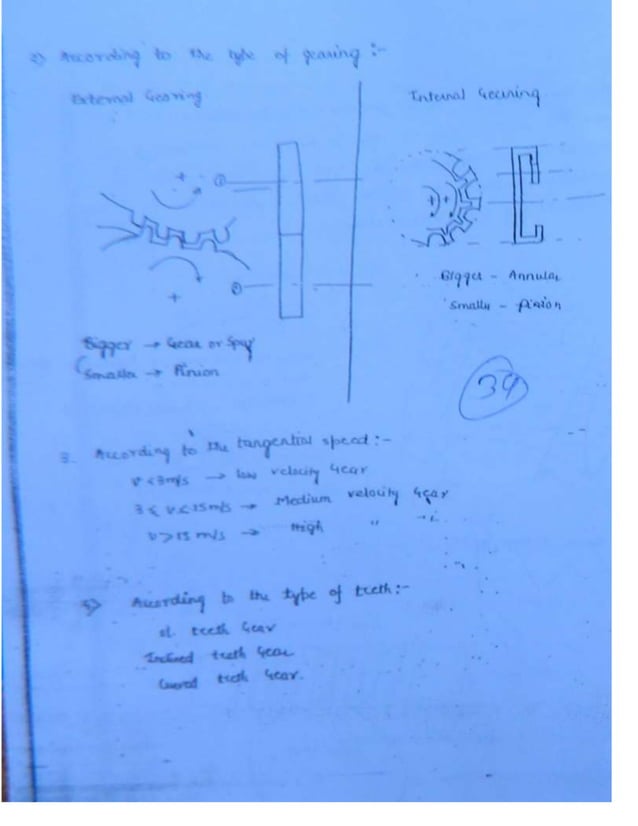 2) According to the type of gearing :-
External Gearing
Internal Gearing
Bigger → Gear or Spur
Smaller → Pinion
Bigger - Annular
Smaller - Pinion
39
3. According to the tangential speed :-
V < 3 m/s → low velocity Gear
3 < V < 15 m/s → Medium velocity Gear
V > 15 m/s → High " "
5) According to the type of teeth :-
st. teeth Gear
Inclined teeth Gear
Curved teeth Gear.